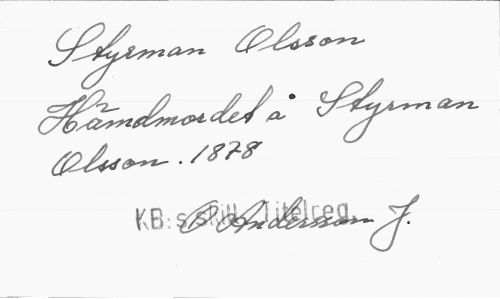 Styrman Olsson
Hämdmordet å Styrman
Olsson. 1878
KB:s skill. Titelreg.
Andersson J.